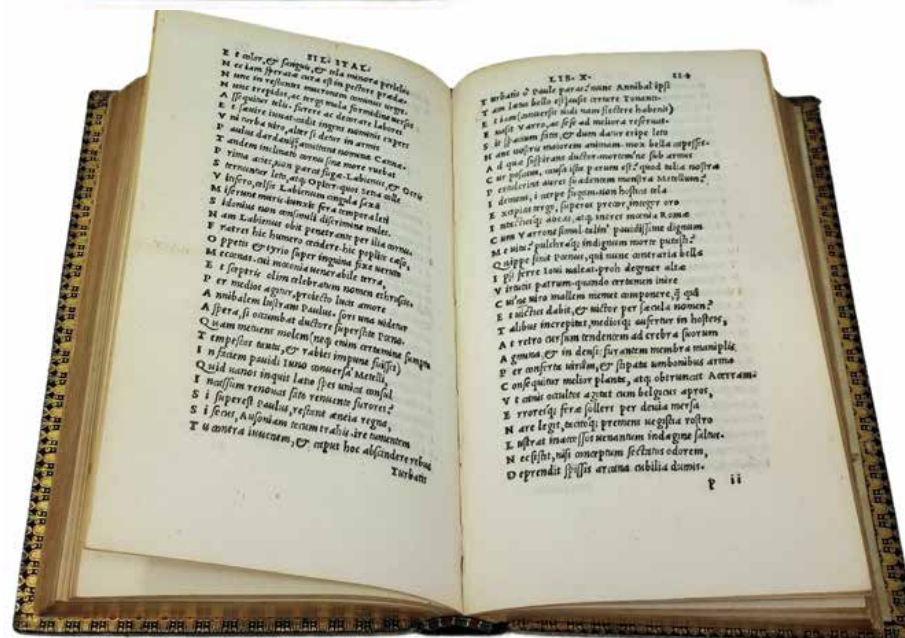 SIL· ITAL·
E t color, & sanguis, & tela minora periclis
N ec iam sperata cura est in pectore prædæ.
N unc in restantes mucronem comminus urget.
N unc trepidos, ac terga mula formidine uersos
A ssequitur telis. furere ac deuorare labores
E t sæuire iuuat. cadit ingens nominis expers
V ni turba uiro, alter si detur in armis
P aulus dardaniis, amittant nomina Cannæ.
T andem inclinato cornu sine more ruebat
P rima acies, non parat fuga. Labienus, & Ocris
S ternuntur leto, atq; Opiter. quos setia colle
V infero, celsis Labienum cingula saxis
M iserunt muris. iunxit fera tempora leti
S idonius non consimili discrimine miles.
N am Labienus obit penetrante per ilia cornu,
F ratres hic humero cecidere. hic poplite cæso,
O ppetis & tyrio super inguina fixe ueruto
M ecœnas. cui mœonia uenerabile terra,
E t sceptris olim celebratum nomen ethruscis.
P er medios agitur, proiecto lucis amore
A nnibalem lustrans Paulus. sors una uidetur
A spera, si occumbat ductore superstite Pœno.
Q uam metuens molem (neq; enim certamine sumpto
T empestas tanta, & rabies impune fuisset)
I n faciem pauidi Iuno conuersa Metelli,
Q uid uanos inquit latio spes unica consul
I ncassum renouas fato renuente furores?
S i superest Paulus, restant æneia regna,
S i secus, Ausoniam tecum trahis. ire tumentem
T u contra iuuenem, & caput hoc abscindere rebus
Turbatis
LIB· X· 114
T urbatis ô Paule paras? nunc Annibal ipsi
T am lætus bello est, ausit certare Tonanti.
E t iam (conuersis uidi nam flectere habenis)
E uasit Varro, ac sese ad meliora reseruat.
S it spatium fatis, & dum datur eripe leto
H anc nostris maiorem animam. mox bella capesses.
A d quæ suspirans ductor. mortemne sub armis
C ur poscam, causa ista parum est? quod talia nostræ
P erdiderint aures suadentem monstra Metellum?
I demens, i carpe fugam. non hostica tela
E xcipias tergo, superos precor, integer oro
I ntactusq; abeas, atq; intres mœnia Romæ
C um Varrone simul. talin' pauidissime dignum
M e uita? pulchraq; indignum morte putasti?
Q uippe sinit Pœnus, qui nunc contraria bella
I psi ferre Ioui ualeat. proh degener altæ
V irtutis patrum. quando certamen inire
C uiue uiro mallem memet componere, q̃ qui
E t uictus dabit, & uictor per sæcula nomen?
T alibus increpitat, mediosq; aufertur in hostes,
A t retro cursum tendentem ad crebra suorum
A gmina, & in densi furantem membra manipli,
P er conferta uirum, & stipata umbonibus arma
C onsequitur melior planta, atq; obtruncat Acerram.
V t canis occultos agitat cum belgicus apros,
E rroresq; feræ sollers per deuia mersa
N are legit, tacitoq; premens uestigia rostro
L ustrat inaccessos uenantum indagine saltus.
N ec sistit, nisi conceptum sectatus odorem,
D eprendit spissis arcana cubilia dumis.
p ii